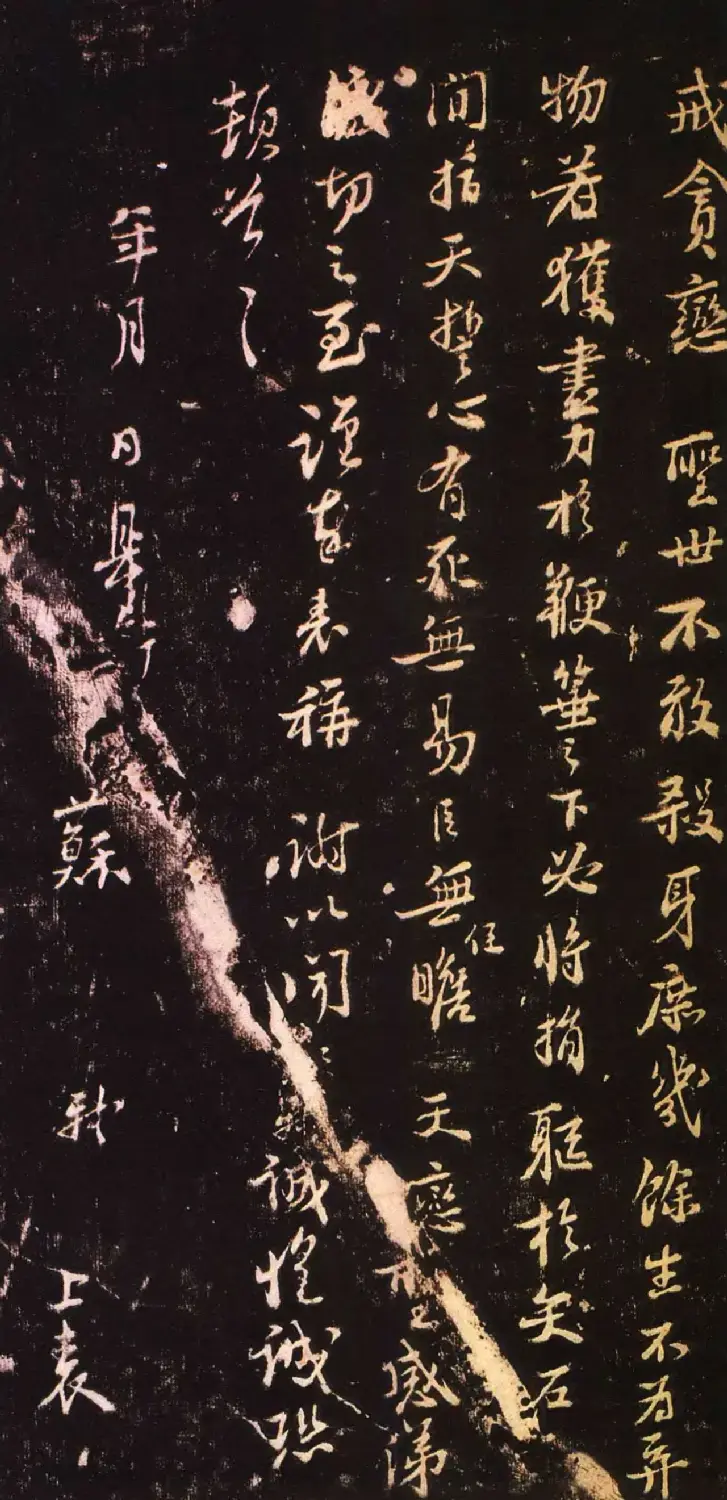 戒貪戀 聖世不敢殺身庶幾餘生不為弃
物若獲盡力於鞭箠之下必將捐軀於矢石
間指天誓心有死無易臣無任瞻 天戀聖感涕
切之至謹奉表稱 謝以聞 軾誠惶誠恐
頓首々
年月 日
蘇 軾 上表